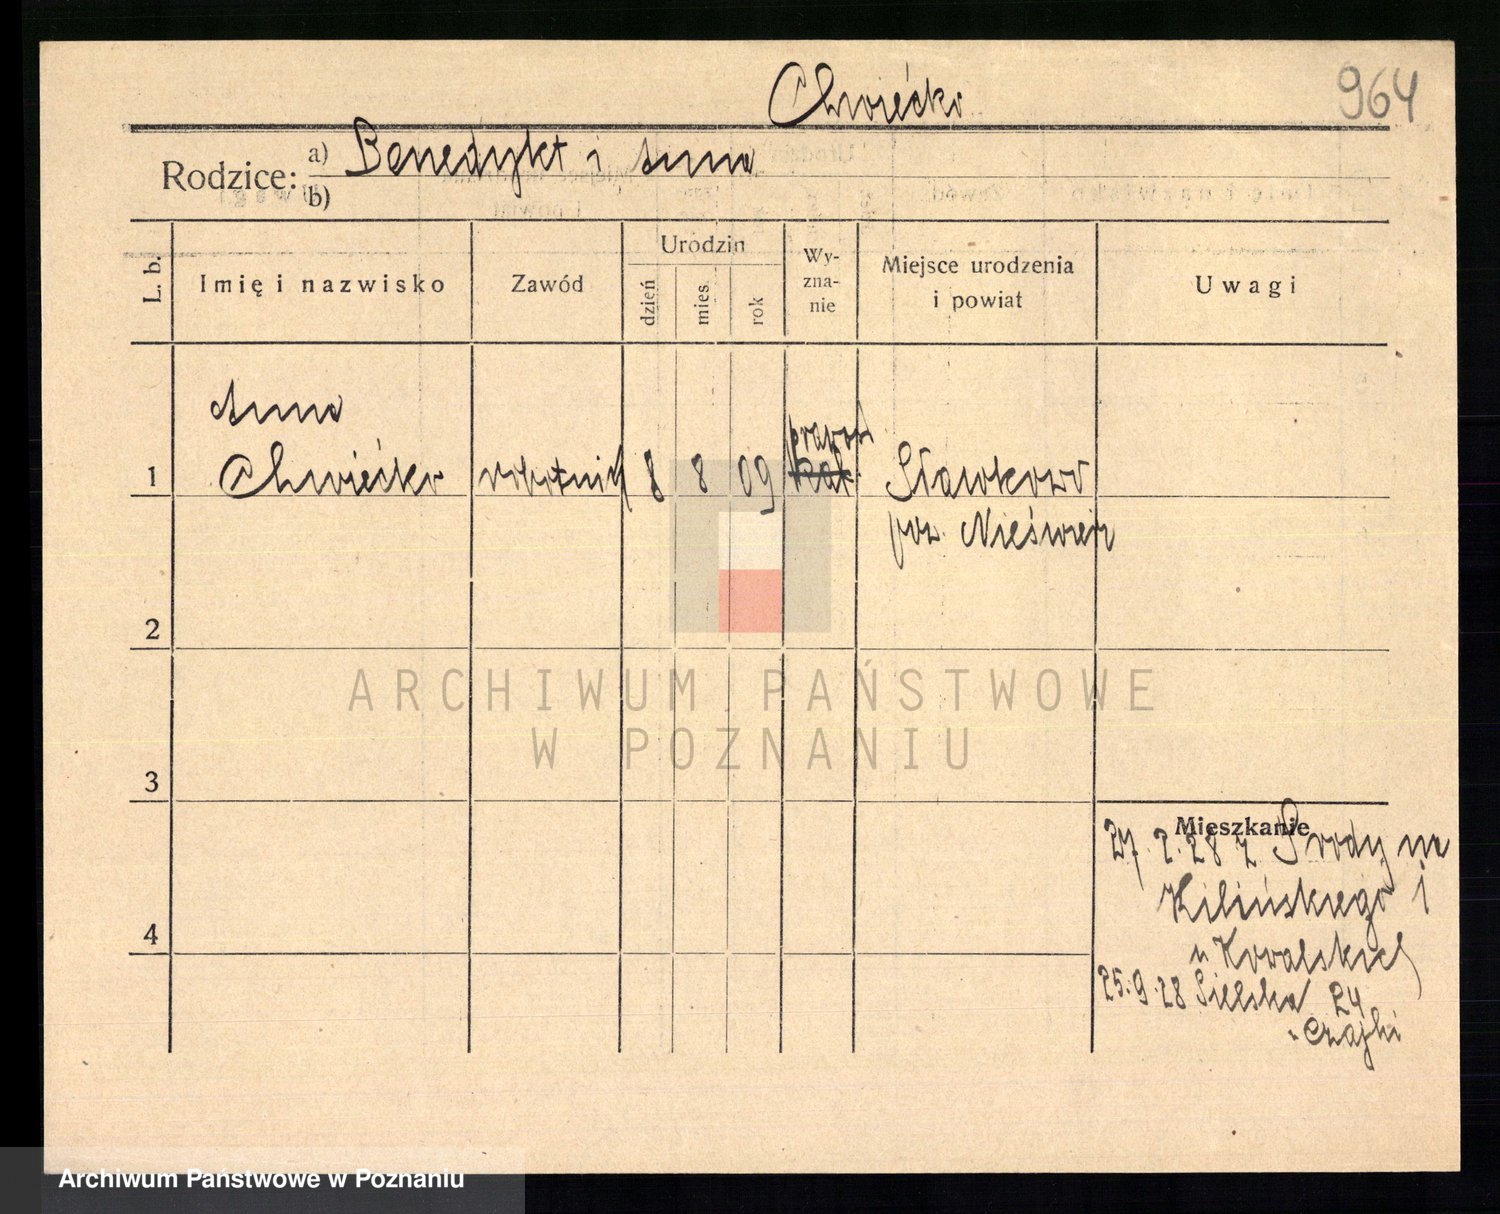 Chwiećko
964
Rodzice: a) Benedykt i Anna
b)
L. b.
Imię i nazwisko
Zawód
Urodzin
dzień
mies.
rok
Wy-
zna-
nie
Miejsce urodzenia
i powiat
Uwagi
Anna
prawos
1 Chwiećko robotnica 8 8 09 kat. Sławkowo
pow. Nieśwież
2
ARCHIWUM PAŃSTWOWE
W POZNANIU
3
Mieszkanie
27.2.28 z Środy na
Kilińskiego 1
4
u Kowalskich
25.9.28 Sielska 24
Czajki
Archiwum Państwowe w Poznaniu